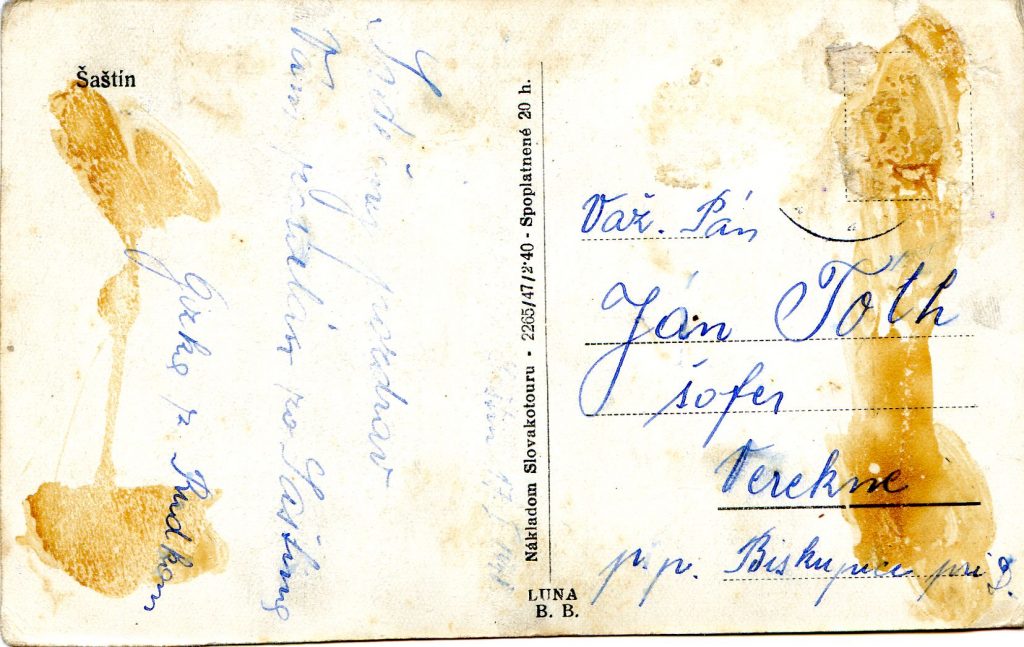 Šaštín
Srdečný pozdrav
Vám zo Šaštína
z Rudkom
Nákladom Slovakotouru - 2265/47/2·40 - Spoplatnené 20 h.
LUNA
B. B.
Váž. Pán
Ján Tóth
šofer
Verekne
p.p. Biskupice pri D.